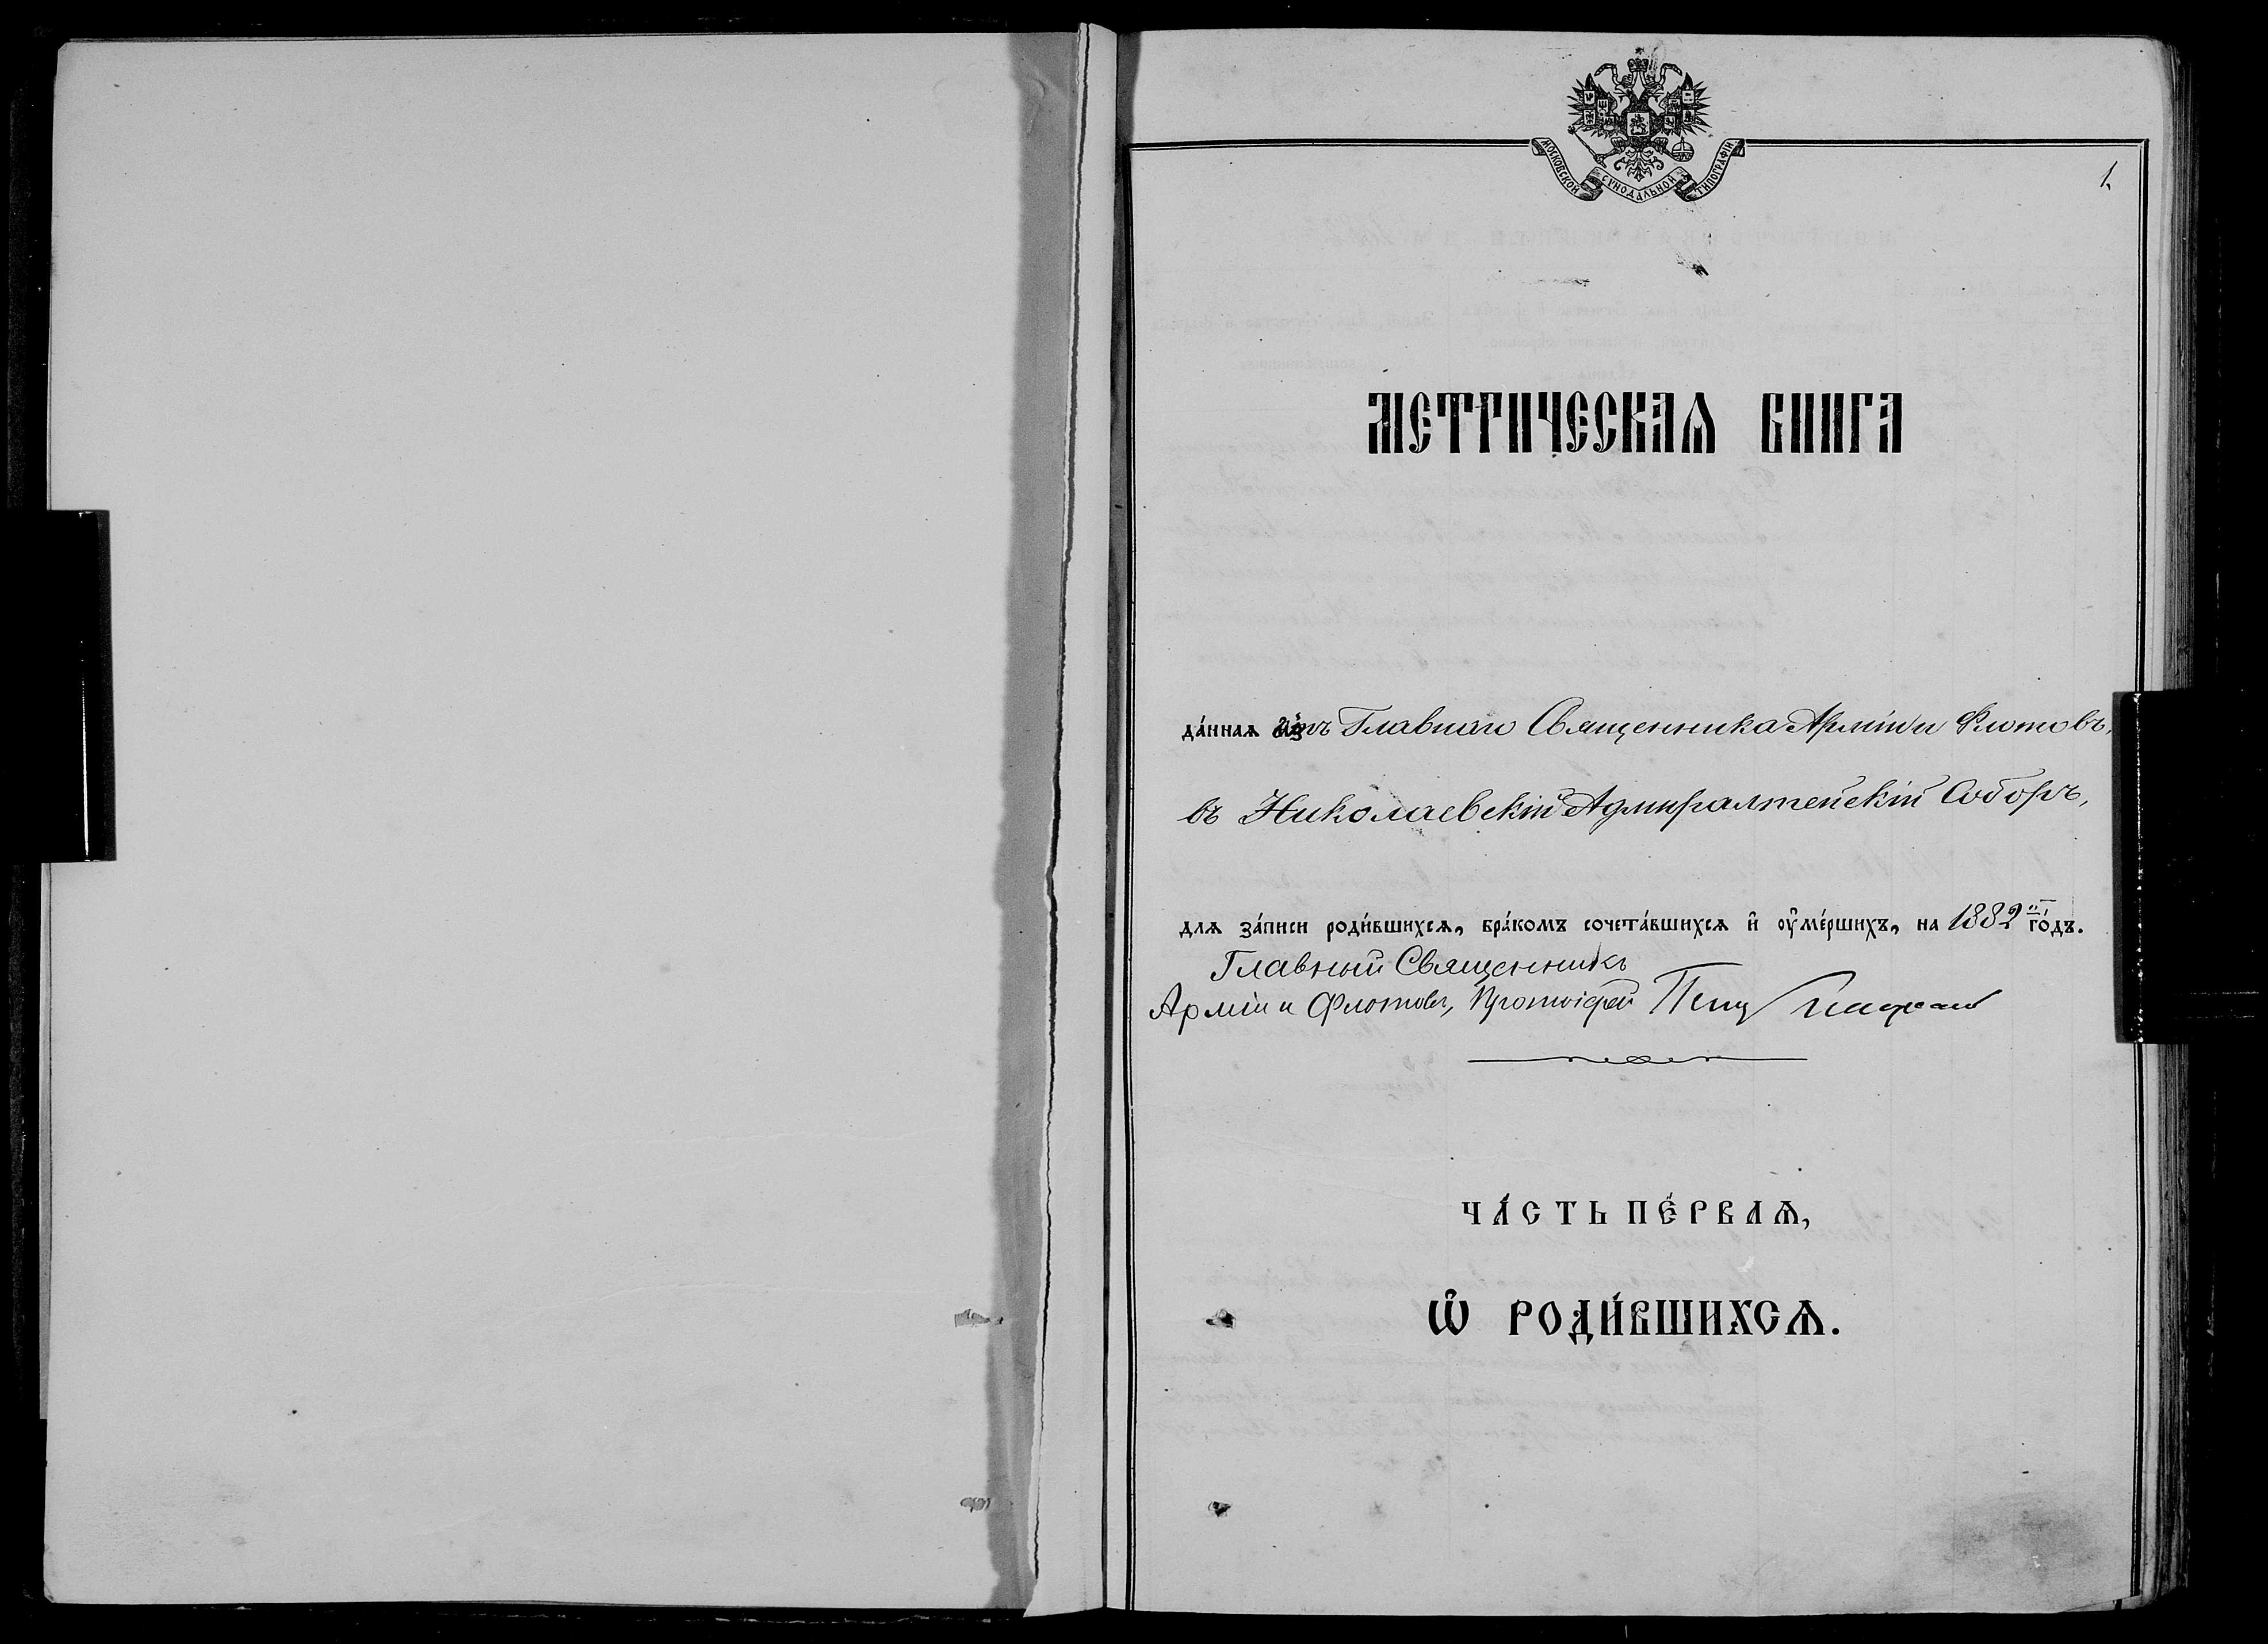 МОСКОВСКОЙ СѴНОДАЛЬНОЙ ТИПОГРАФІИ
1.
МЕТРИЧЕСКАѦ КНИГА
да́ннаѧ отъ Главнаго Священника Арміи и Флотовъ,
въ Николаевскій Адмиралтейскій Соборъ,
длѧ за́писи роди́вшихсѧ, бра́комъ сочета́вшихсѧ и҆ ᲂу҆ме́ршихъ, на 1882 й го́дъ.
Главный Священникъ
Арміи и Флотовъ, Протоіерей Петръ
ЧА́СТЬ ПЕ́РВАѦ,
Ѽ РОДИ́ВШИХСѦ.